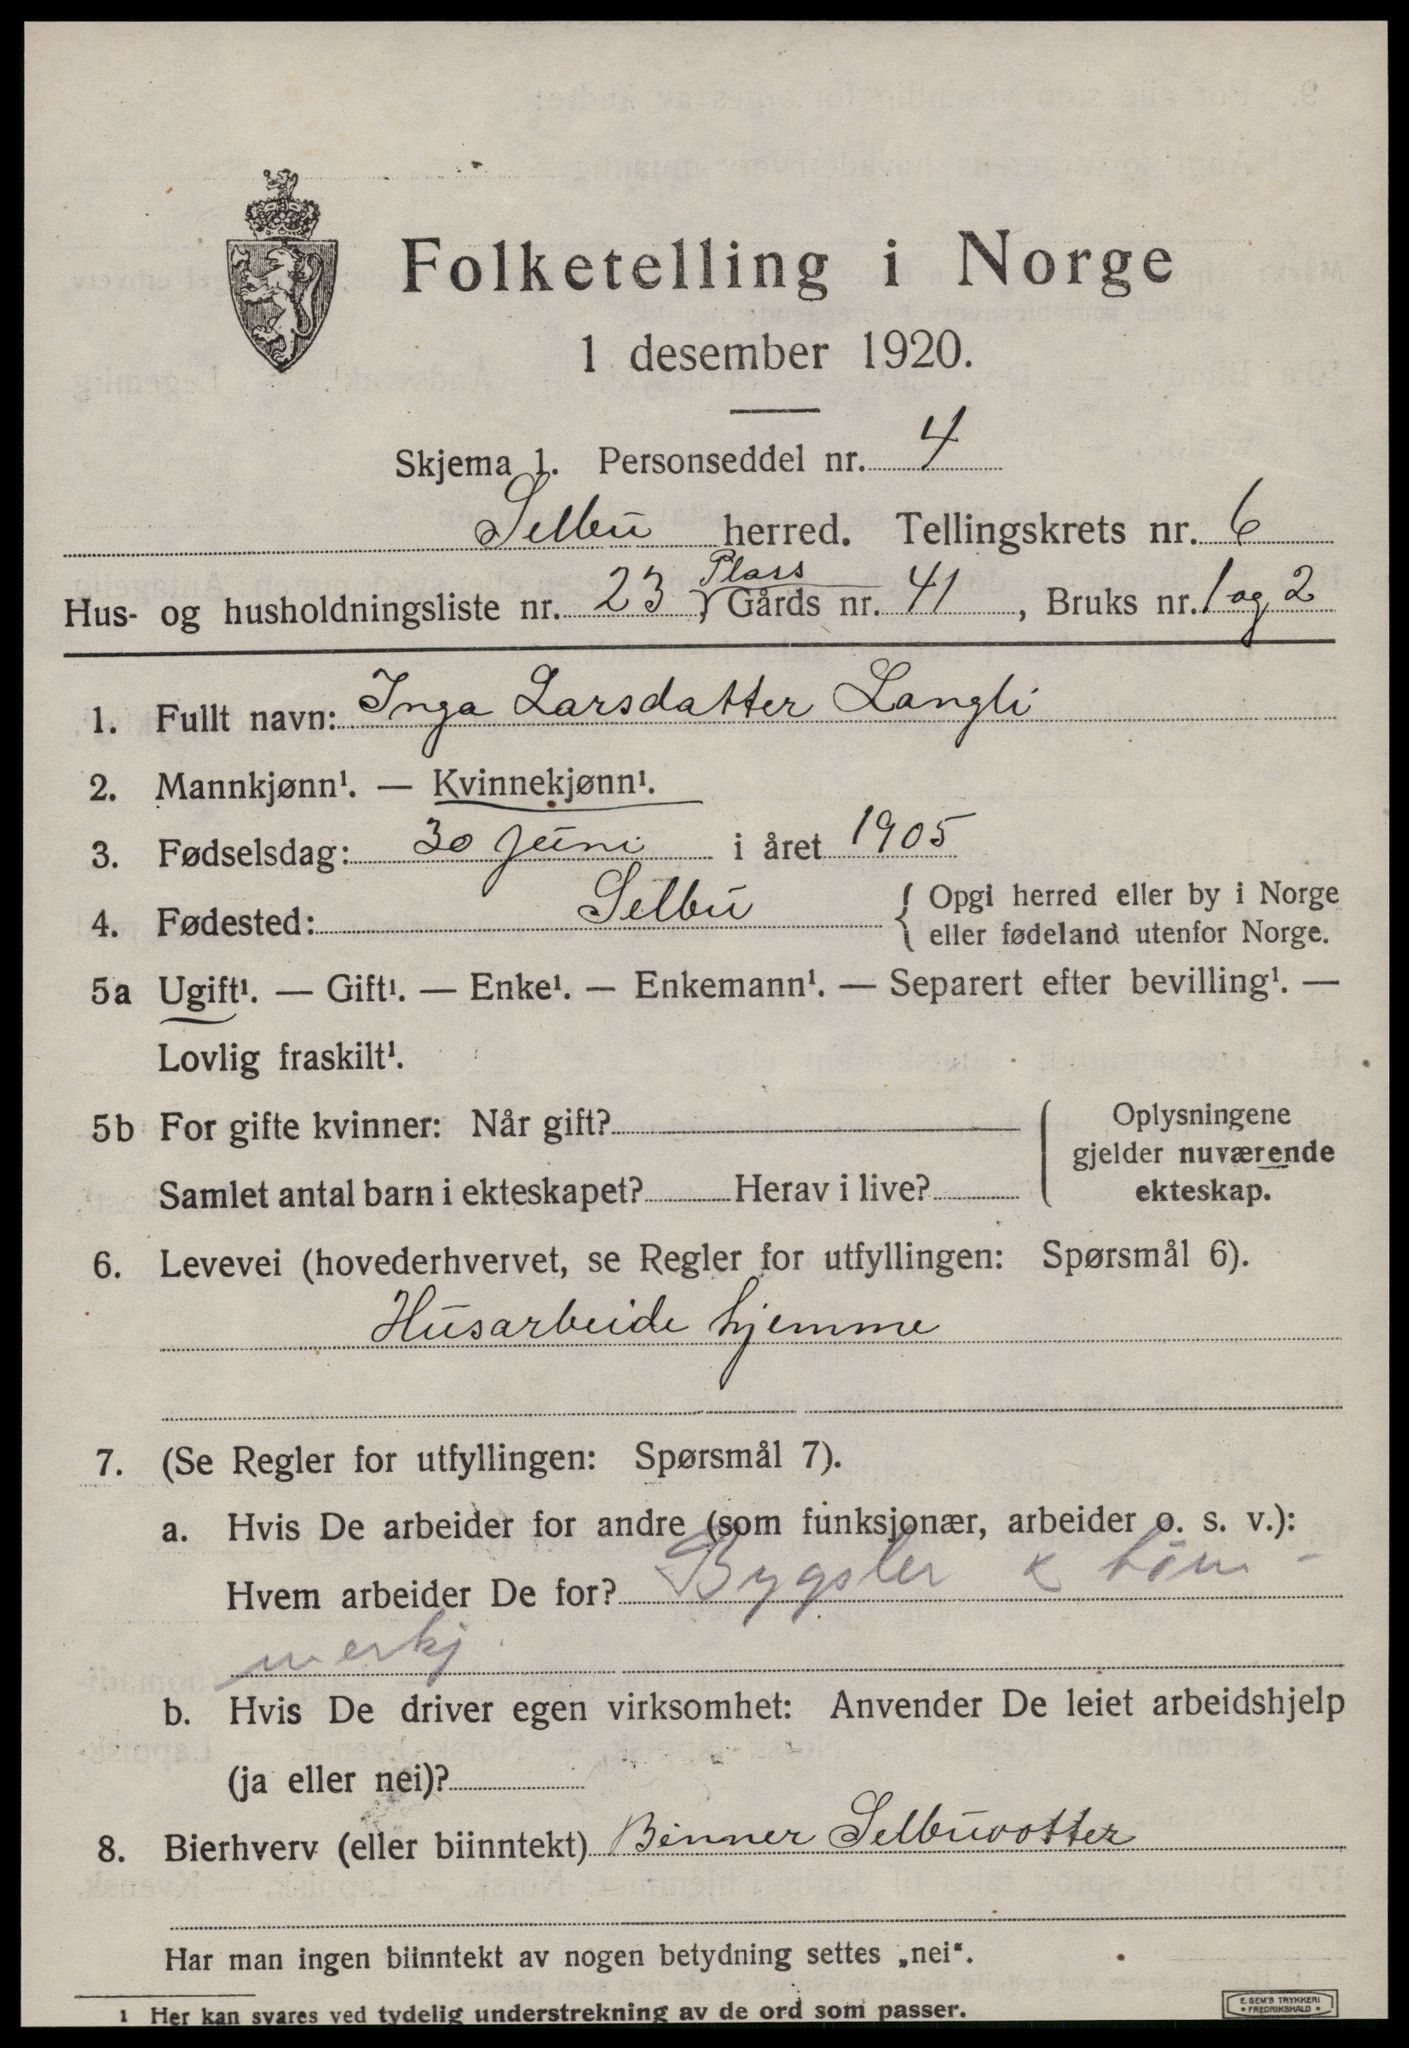 Folketelling i Norge
1 desember 1920.
Skjema 1. Personseddel nr. 4
Selbu herred. Tellingskrets nr. 6
Plass
Hus- og husholdningsliste nr. 23 Gårds nr. 41, Bruks nr. 1 og 2
1. Fullt navn: Inga Larsdatter Langli
2. Mannkjønn¹. — Kvinnekjønn¹.
3. Fødselsdag: 30 juni i året 1905
4. Fødested: Selbu { Opgi herred eller by i Norge
eller fødeland utenfor Norge.
5a Ugift¹. — Gift¹. — Enke¹. — Enkemann¹. — Separert efter bevilling¹. —
Lovlig fraskilt¹.
5b For gifte kvinner: Når gift?
Samlet antal barn i ekteskapet? Herav i live?
Oplysningene
gjelder nuværende
ekteskap.
6. Levevei (hovederhvervet, se Regler for utfyllingen: Spørsmål 6).
Husarbeide hjemme
7. (Se Regler for utfyllingen: Spørsmål 7).
a. Hvis De arbeider for andre (som funksjonær, arbeider o. s. v.):
Hvem arbeider De for? Bygsler & töm-
merkj
b. Hvis De driver egen virksomhet: Anvender De leiet arbeidshjelp
(ja eller nei)?
8. Bierhverv (eller biinntekt) Binner Selbuvotter
Har man ingen biinntekt av nogen betydning settes „nei“.
1 Her kan svares ved tydelig understrekning av de ord som passer.
E. SEM'S TRYKKERI
FREDRIKSHALD